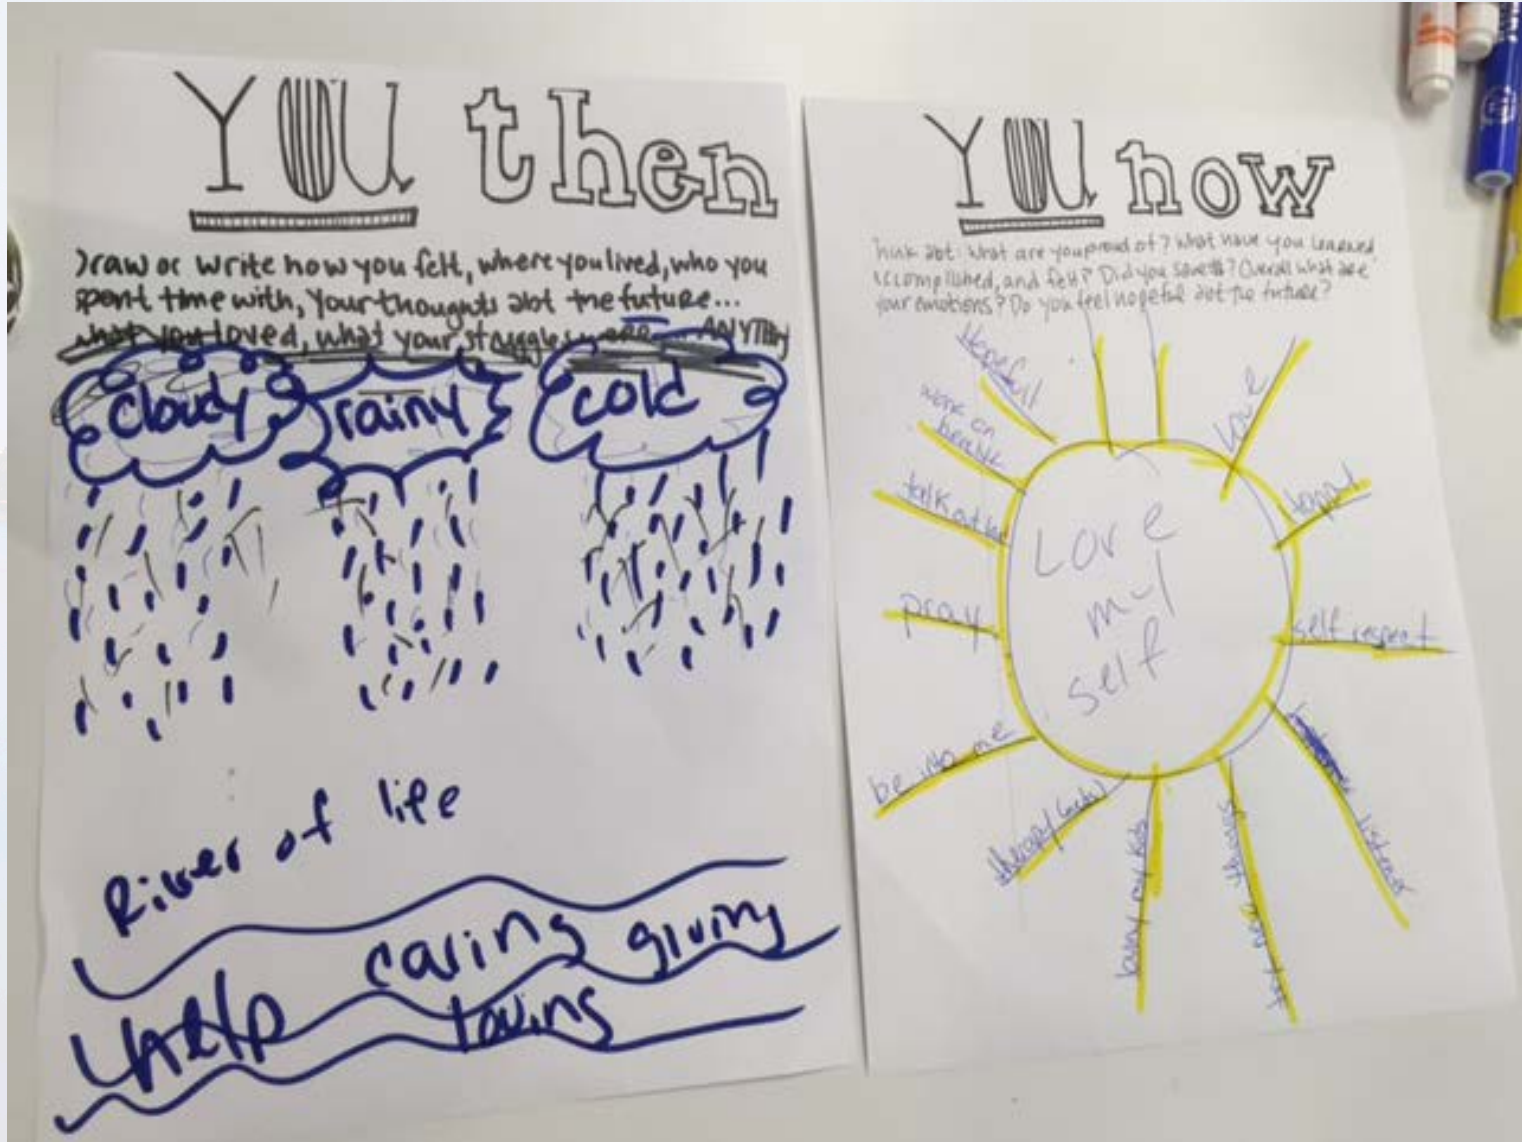 YOU then
Draw or write how you felt, where you lived, who you
spent time with, your thoughts abt the future...
what you loved, what your struggles were ANYTHING
cloudy
rainy
cold
River of life
caring giving
help
loving
YOU now
Think abt: What are you proud of? What have you learned
accomplished, and felt? Did you save $? Overall what are
your emotions? Do you feel hopeful abt the future?
Hopefull
work on
talk
pray
be into me
therapy
bury my kids
new things
listener
self respect
happy
love
Love
my
self